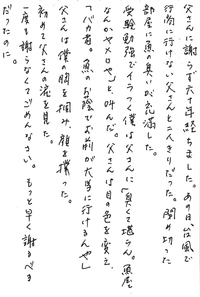 父さんに謝らず六十年経ちました。あの日、台風で
行商に行けない父さんと二人きりだった。閉め切った
部屋に魚の臭いが充満した。
受験勉強でイラつく僕は父さんに「臭くて堪らん。魚屋
なんかやメロや」と叫んだ。父さんは目の色を変え
「バカ者。魚のお陰でお前が大学に行けるんや」
父さんは僕の胸を掴み顔を撲った。
初めて父さんの涙を見た。
一度も謝らなくてごめんなさい。もっと早く謝るべき
だったのに。